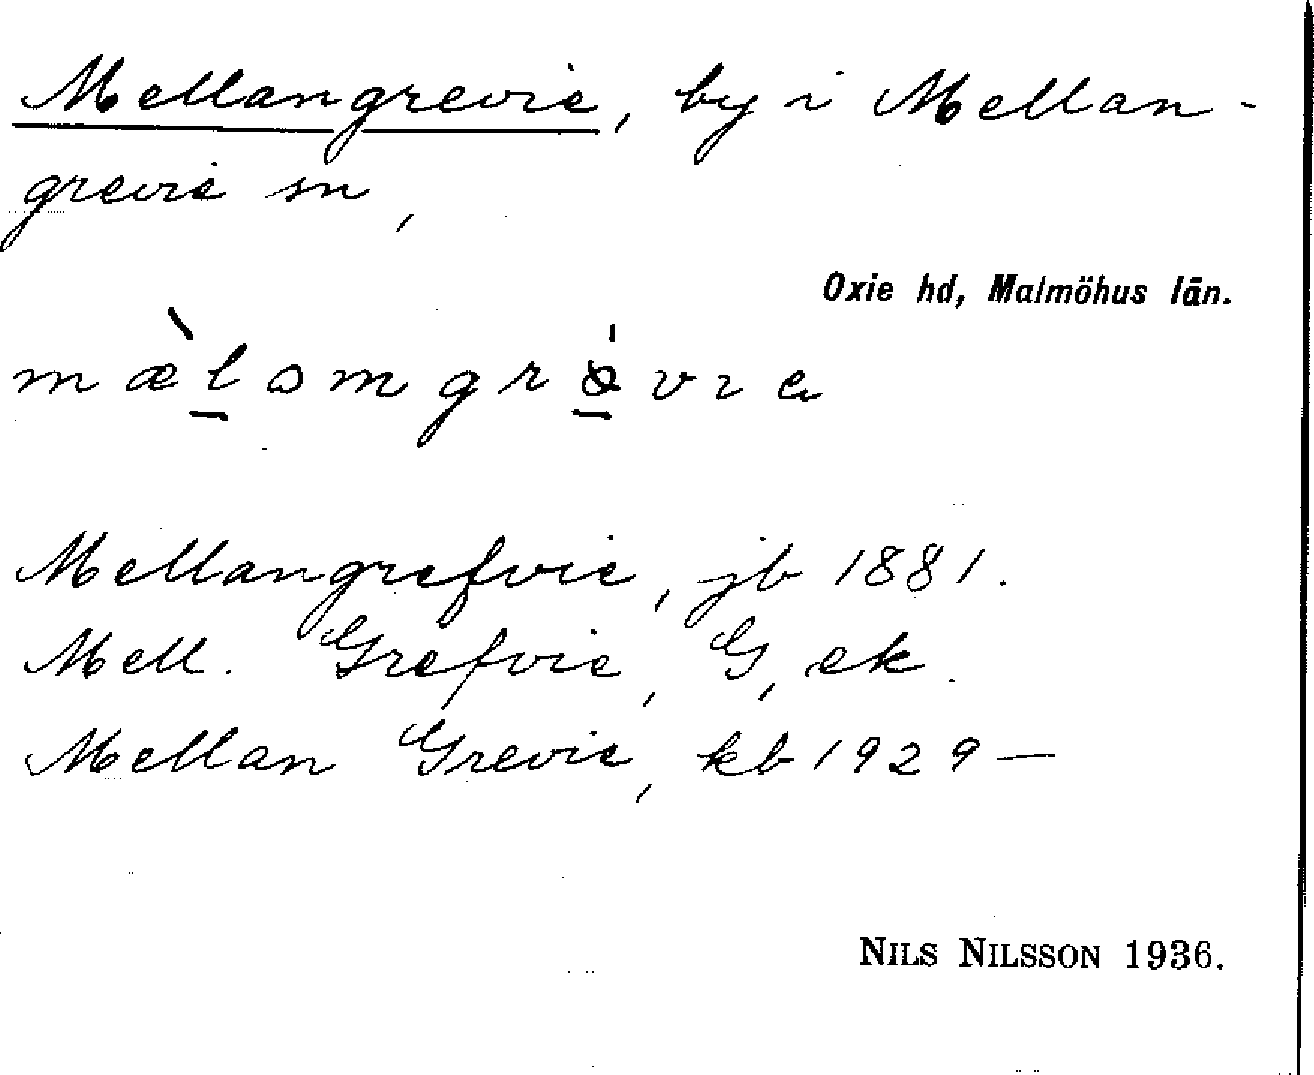 Mellangrevie, by i Mellan-
grevie sn,
Oxie hd, Malmöhus län.
Mellangrefvie, jb 1881.
Mell. Grefvie, G, ek.
Mellan Grevie, kb 1929 —
NILS NILSSON 1936.